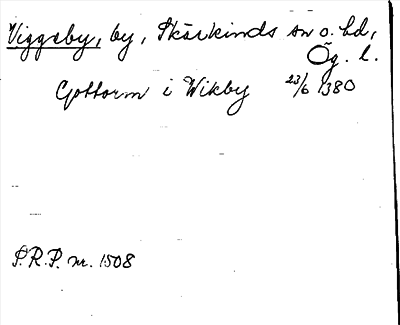 Viggeby, by, Skärkinds sn o. hd,
Ög. l.
Gottorm i Wikby 23/6 1380
P.R.P. nr. 1508